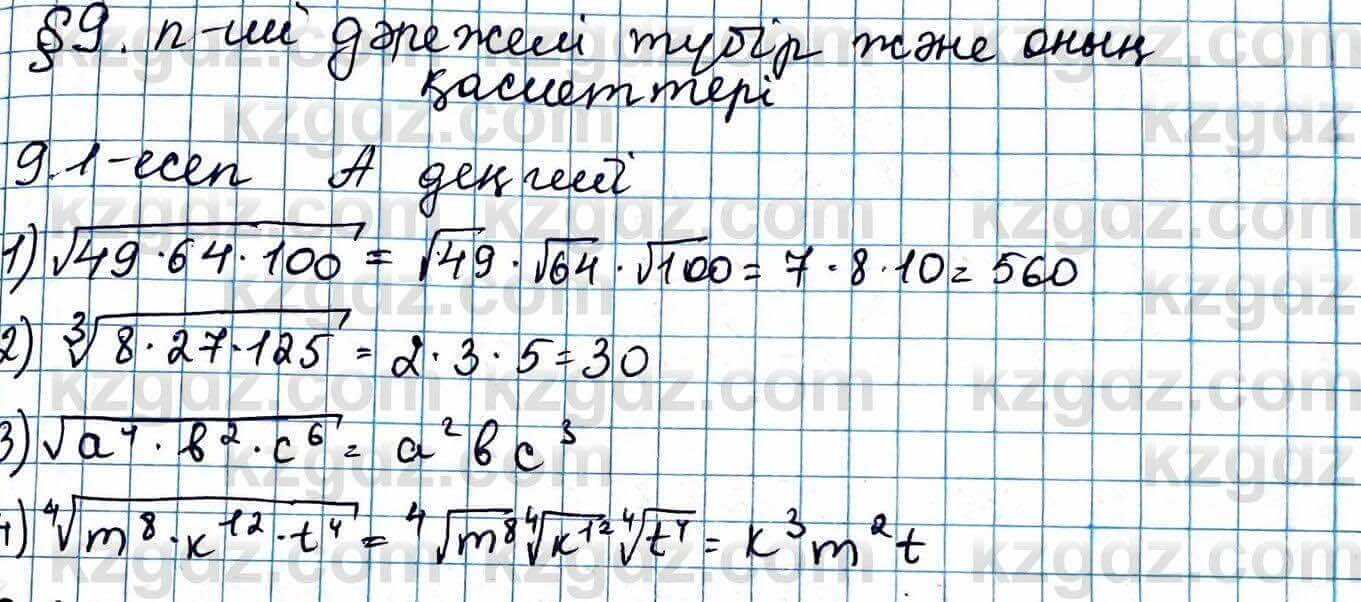 §9. n-ші дәрежелі түбір және оның
қасиеттері
9.1-есеп А деңгейі
1) √(49·64·100) = √49·√64·√100 = 7·8·10 = 560
2) ³√(8·27·125) = 2·3·5 = 30
3) √(a⁴·b²·c⁶) = a²bc³
4) ⁴√(m⁸·k¹²·t⁴) = ⁴√m⁸ ⁴√k¹² ⁴√t⁴ = k³m²t
kzgdz.com